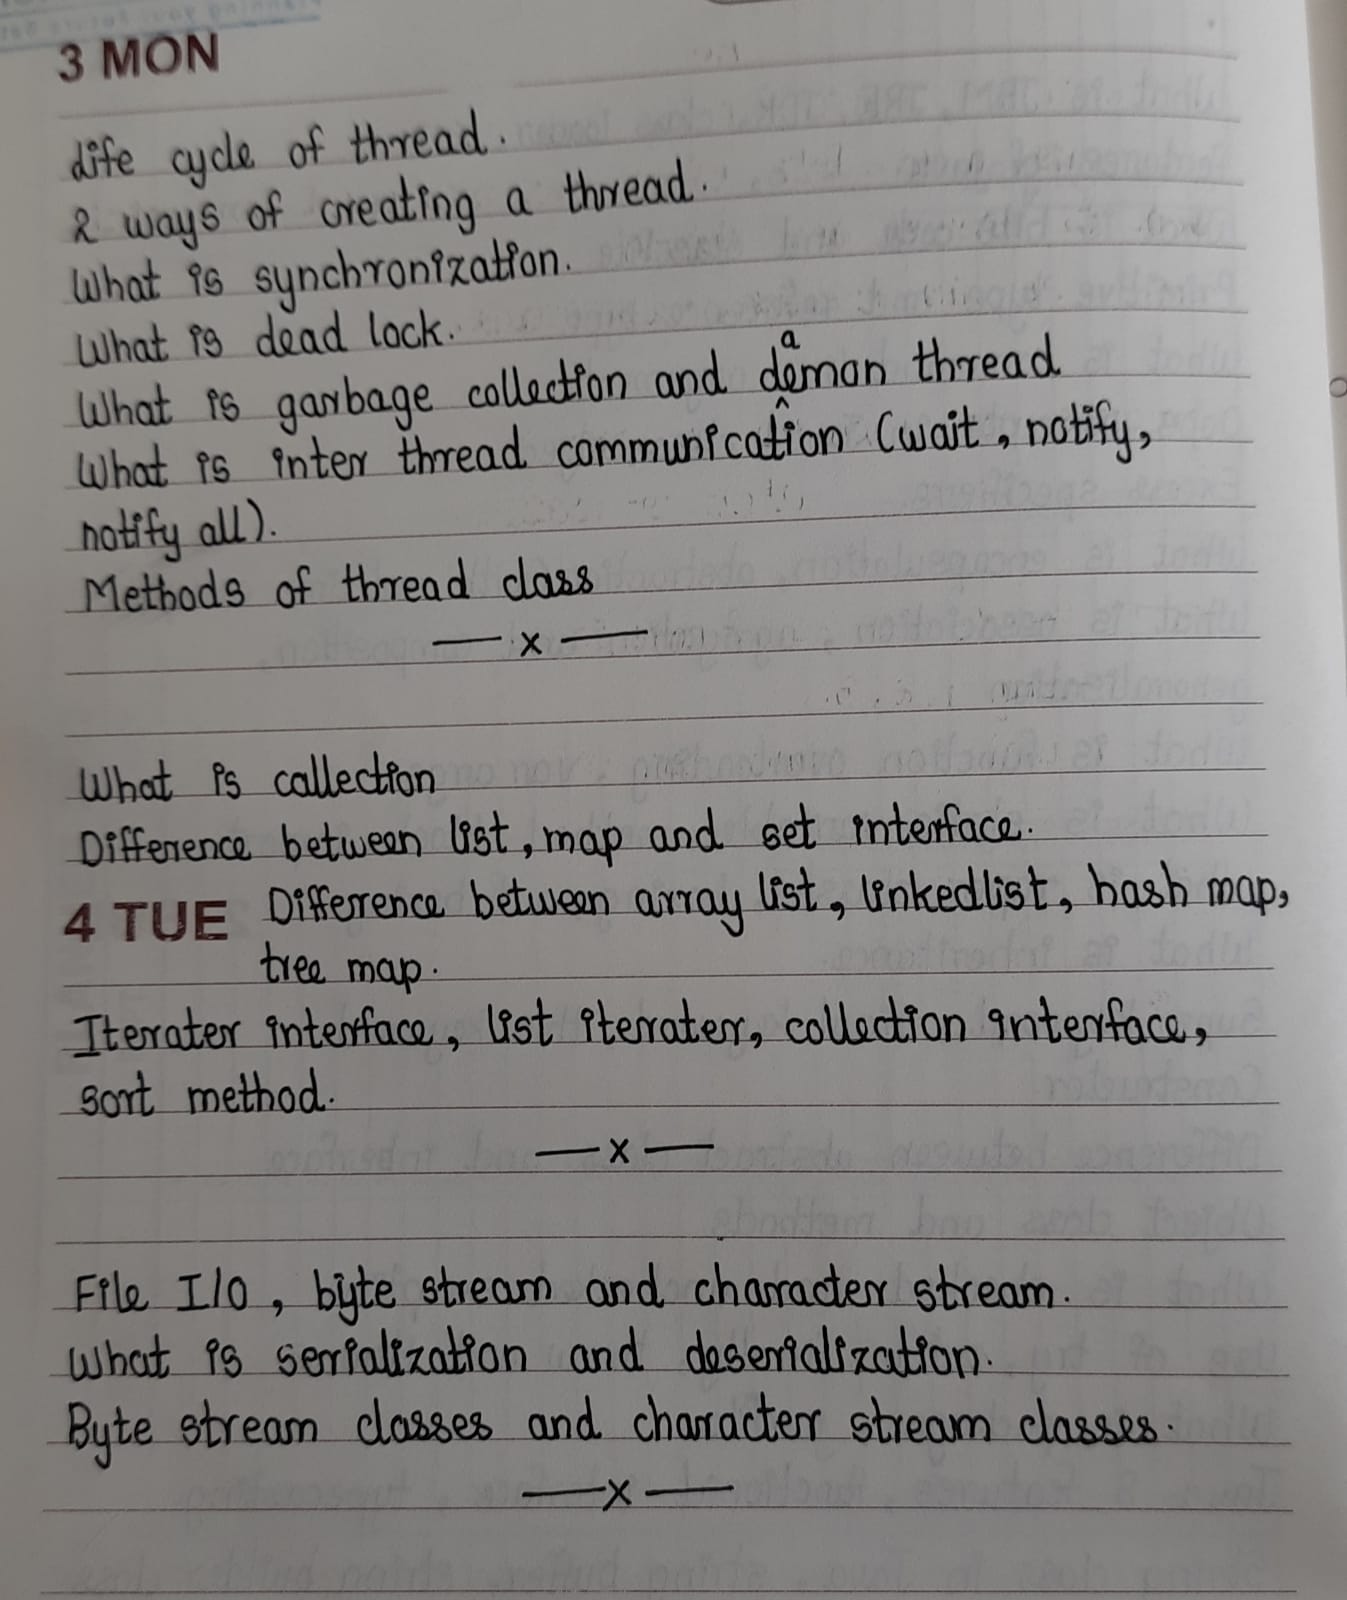 3 MON
Life cycle of thread.
2 ways of creating a thread.
What is synchronization.
What is dead lock.
What is garbage collection and daemon thread
What is inter thread communication (wait, notify,
notify all).
Methods of thread class
— x —
What is collection
Difference between list, map and set interface.
4 TUE Difference between array list, linkedlist, hash map,
tree map.
Iterater interface, list iterater, collection interface,
sort method.
— x —
File I/O, byte stream and character stream.
What is serialization and deserialization.
Byte stream classes and character stream classes.
— x —